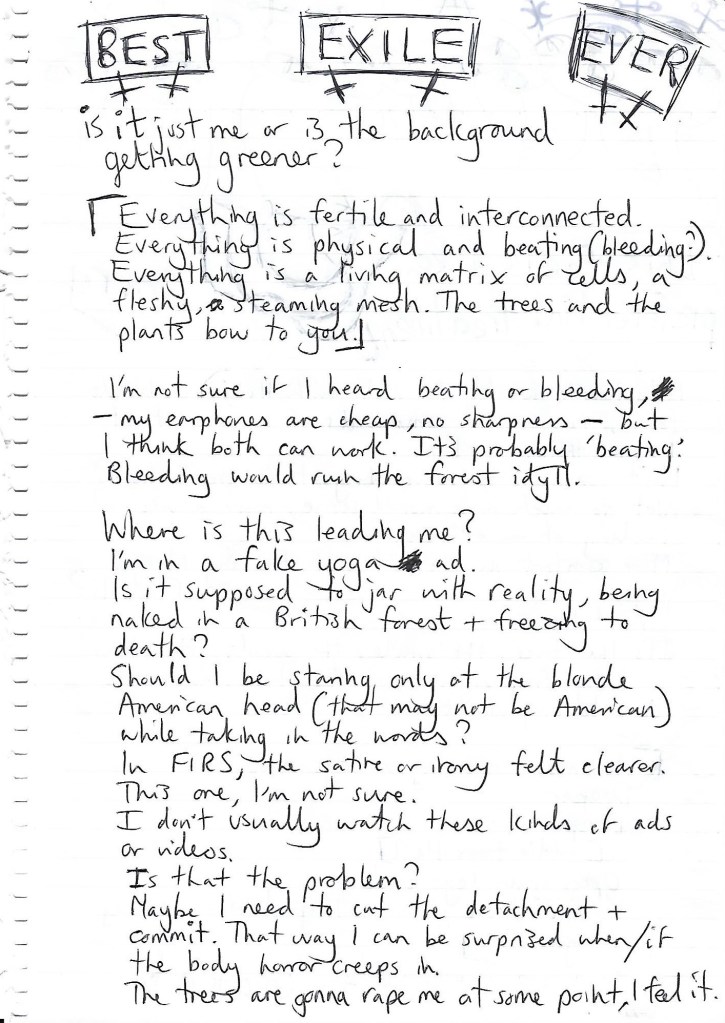 BEST EXILE EVER
is it just me or is the background
getting greener?
「Everything is fertile and interconnected.
Everything is physical and beating (bleeding?).
Everything is a living matrix of cells, a
fleshy, steaming mesh. The trees and the
plants bow to you.」
I'm not sure if I heard beating or bleeding,
– my earphones are cheap, no sharpness – but
I think both can work. It's probably 'beating'.
Bleeding would ruin the forest idyll.
Where is this leading me?
I'm in a fake yoga ad.
Is it supposed to jar with reality, being
naked in a British forest + freezing to
death?
Should I be staring only at the blonde
American head (that may not be American)
while taking in the words?
In FIRS, the satire or irony felt clearer.
This one, I'm not sure.
I don't usually watch these kinds of ads
or videos.
Is that the problem?
Maybe I need to cut the detachment +
commit. That way I can be surprised when/if
the body horror creeps in.
The trees are gonna rape me at some point, I feel it.